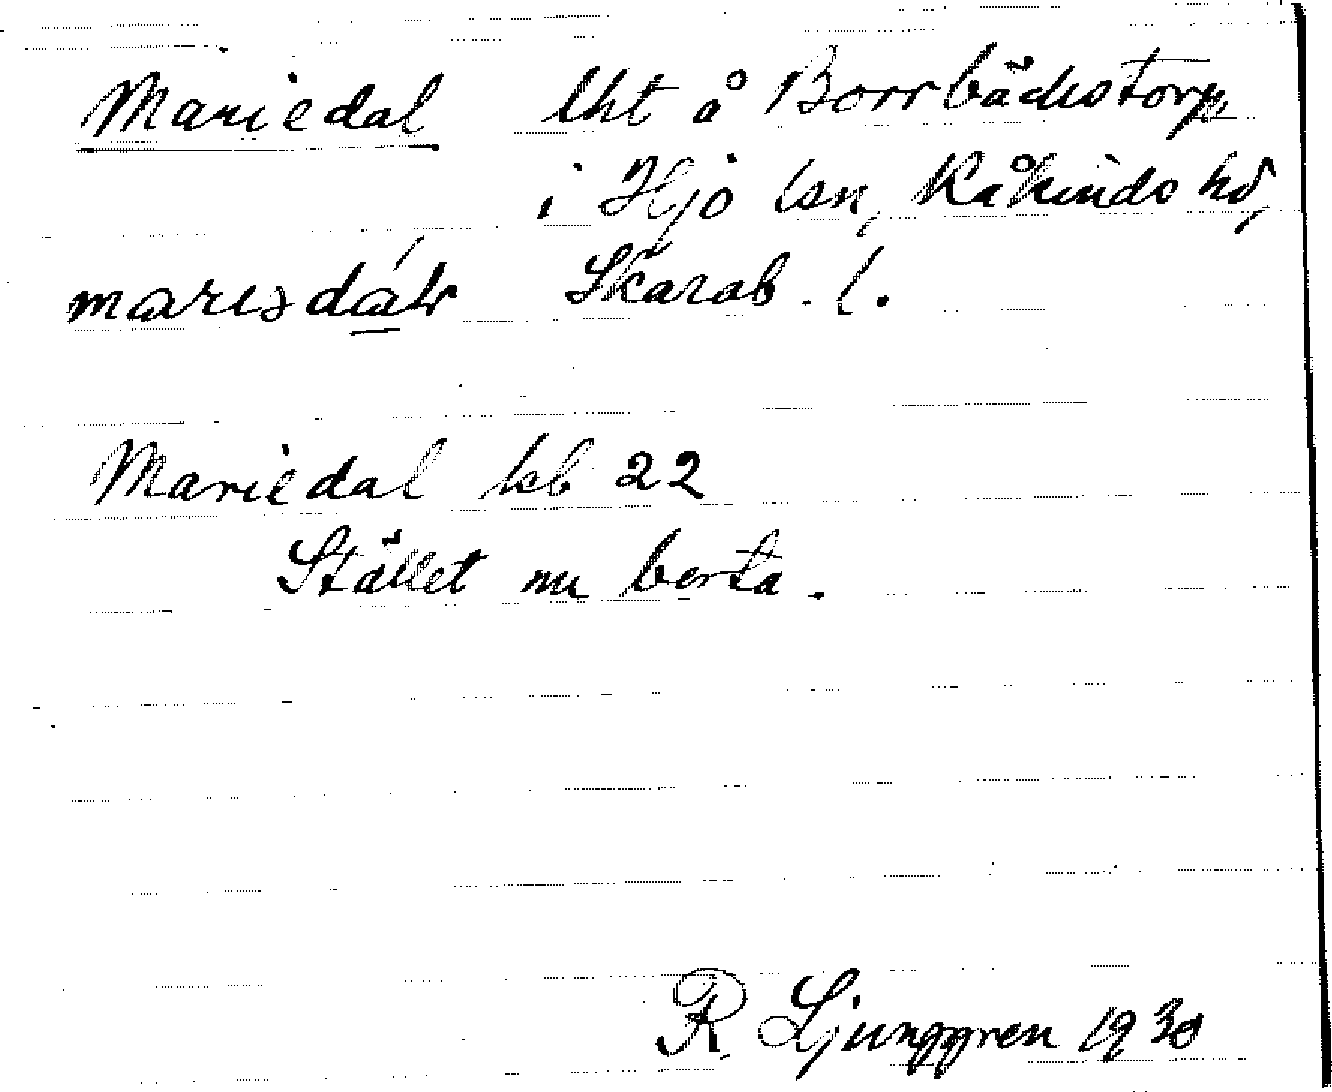 Mariedal lht å Borrbäckstorp,
i Hjo lsn, Kåkinds hd,
Skarab. l.
Mariedal kb 22
Stället nu borta.
R. Ljunggren 1930